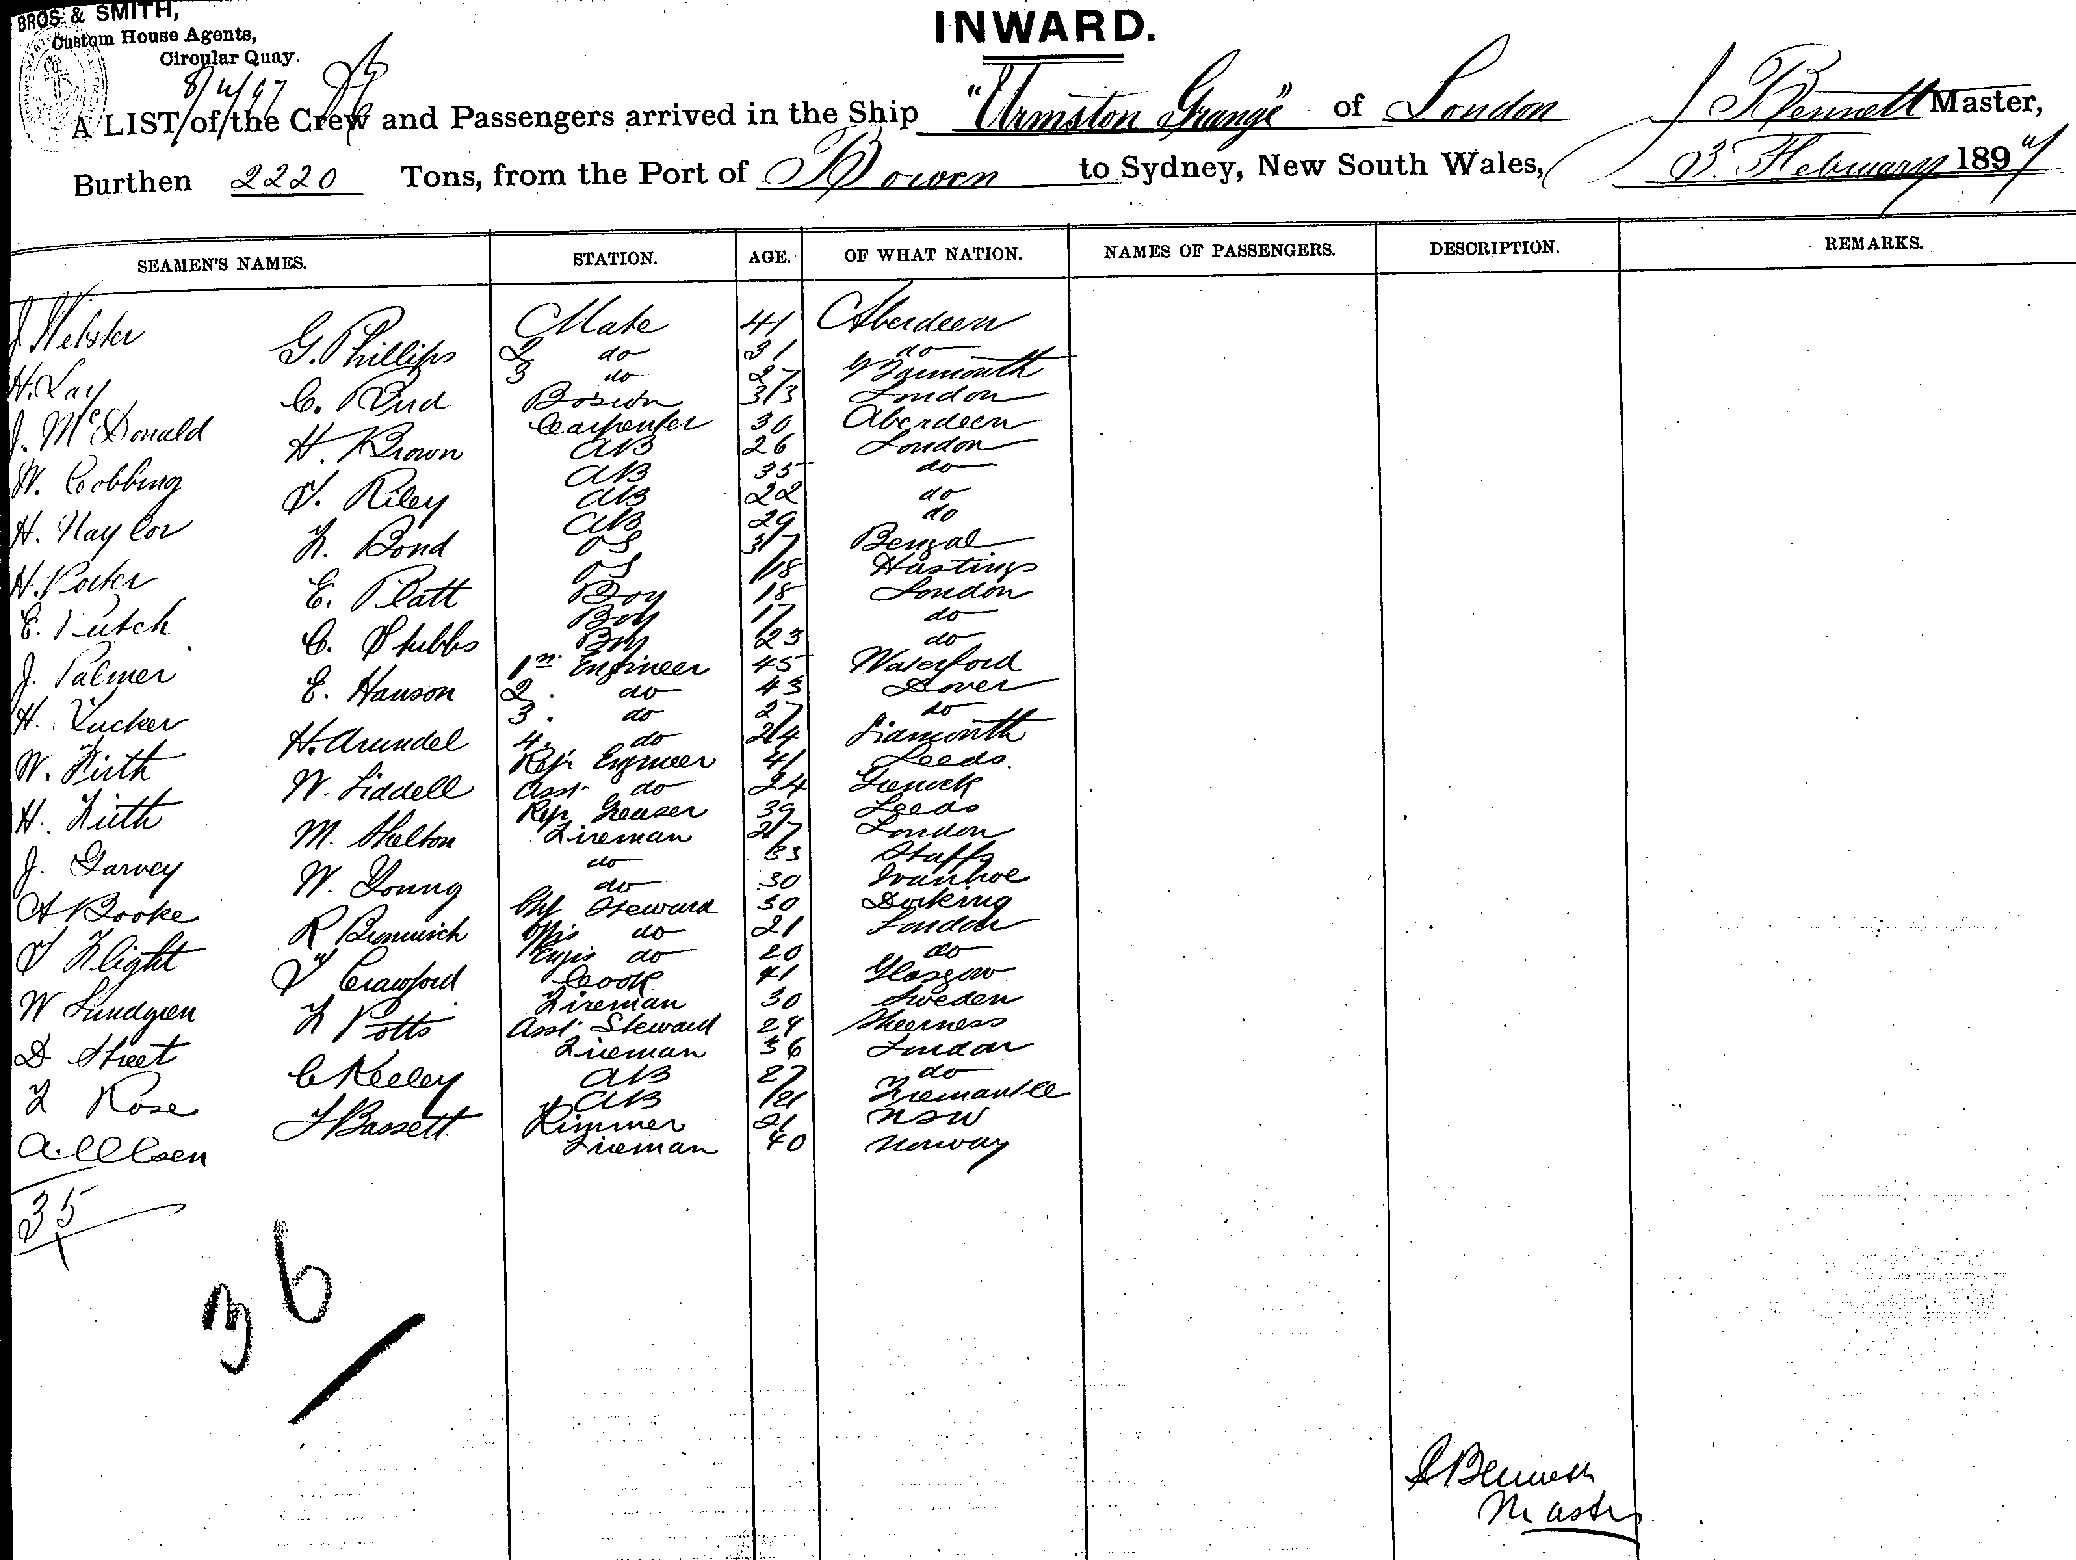 BROS. & SMITH,
Custom House Agents,
Circular Quay.
8/4/97
INWARD.
A LIST of the Crew and Passengers arrived in the Ship "Urmston Grange" of London J Bennett Master,
Burthen 2220 Tons, from the Port of Bowen to Sydney, New South Wales, 3 February 1897
SEAMEN'S NAMES. STATION. AGE. OF WHAT NATION. NAMES OF PASSENGERS. DESCRIPTION. REMARKS.
J. Webster Mate 41 Aberdeen
G. Phillips 2 do 31 do
H. Lay 3 do 27 Yarmouth
C. Rud Bosun 33 London
J. McDonald Carpenter 30 Aberdeen
H. Brown AB 26 London
W. Cobbing AB 35 do
T. Riley AB 22 do
H. Naylor AB 29 do
F. Bond OS 37 Bengal
H. Porter OS 18 Hastings
E. Platt Boy 18 London
E. Putch Boy 17 do
C. Stubbs Boy 23 do
J. Palmer 1st Engineer 45 Waterford
E. Hanson 2. do 43 Dover
H. Tucker 3. do 27 do
H. Arundel 4. do 24
W. Firth Refr Engineer 41 Leeds.
W. Liddell Asst. do 24 Greenock
H. Firth Refr Greaser 39 Leeds
M. Shelton Fireman 27 London
J. Garvey do 33 Staffs
W. Young do 30 Ivanhoe
A Booke Chf Steward 30 Dorking
R Bromwich do 21 London
T Flight Engrs do 20 do
T Crawford Cook 41 Glasgow
W Lundgren Fireman 30 Sweden
F Potts Asst. Steward 29 Sheerness
D Street Fireman 36 London
C Keeley AB 27 do
F Rose AB 21 Fremantle
F Bassett Trimmer 21 NSW
A. Olsen Fireman 40 Norway
35
36
J Bennett
Master